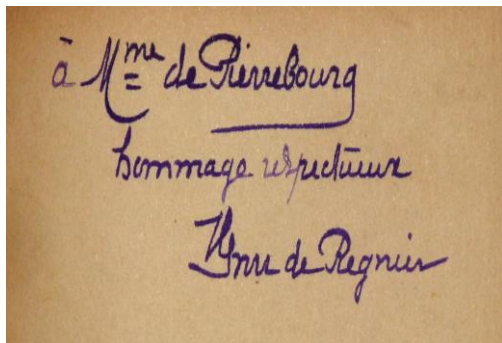 à Mme de Pierrebourg
hommage respectueux
Henri de Regnier